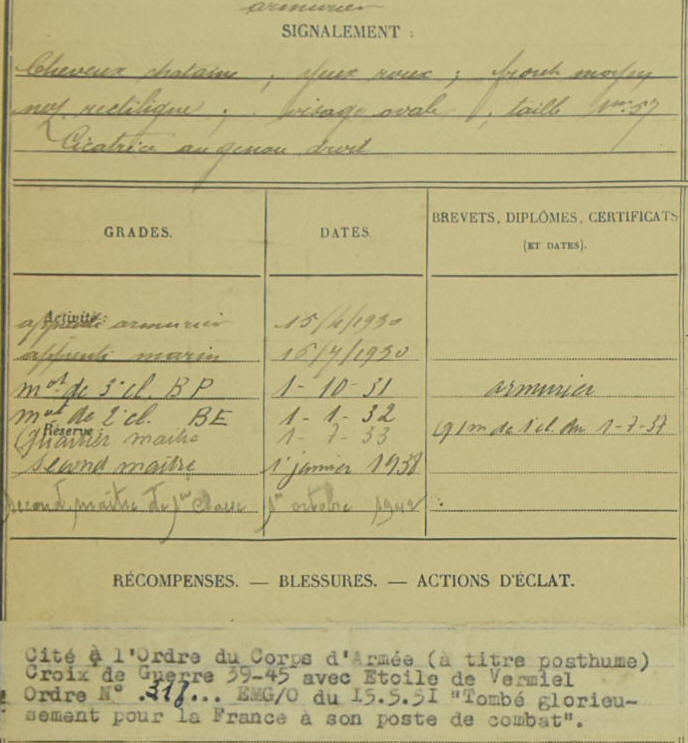 armurier
SIGNALEMENT :
Cheveux chatains ; yeux roux ; front moyen
nez rectiligne ; visage ovale ; taille 1m:57
Cicatrice au genou droit
GRADES. DATES. BREVETS, DIPLÔMES, CERTIFICATS
(ET DATES).
Activité :
apprenti armurier 15/4/1930
apprenti marin 16/7/1930
mot de 3e cl. BP 1-10-31 armurier
mot de 2e cl. BE 1-1-32
Réserve :
Quartier maître 1-7-33 q/m de 1e cl. du 1-7-37
second maître 1 janvier 1938
second maître de 1re classe 1er octobre 1942
RÉCOMPENSES. — BLESSURES. — ACTIONS D'ÉCLAT.
Cité à l'Ordre du Corps d'Armée (à titre posthume)
Croix de Guerre 39-45 avec Etoile de Vermiel
Ordre N° 318... EMG/O du I5.5.5I "Tombé glorieu-
sement pour la France à son poste de combat".